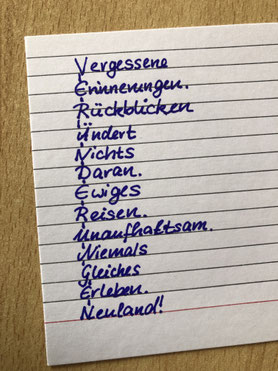 Vergessene
Erinnerungen.
Rückblicken
Ändert
Nichts
Daran.
Ewiges
Reisen.
Unaufhaltsam.
Niemals
Gleiches
Erleben.
Neuland!